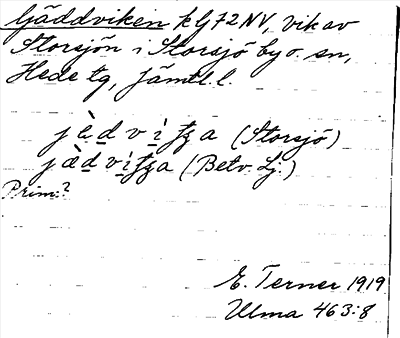 Gäddviken kG72NV, vik av
Storsjön i Storsjö by o. sn,
Hede tg, Jämtl. l.
(Storsjö)
(Betv. Lj.)
Prim.?
E. Terner 1919
Ulma 463:8